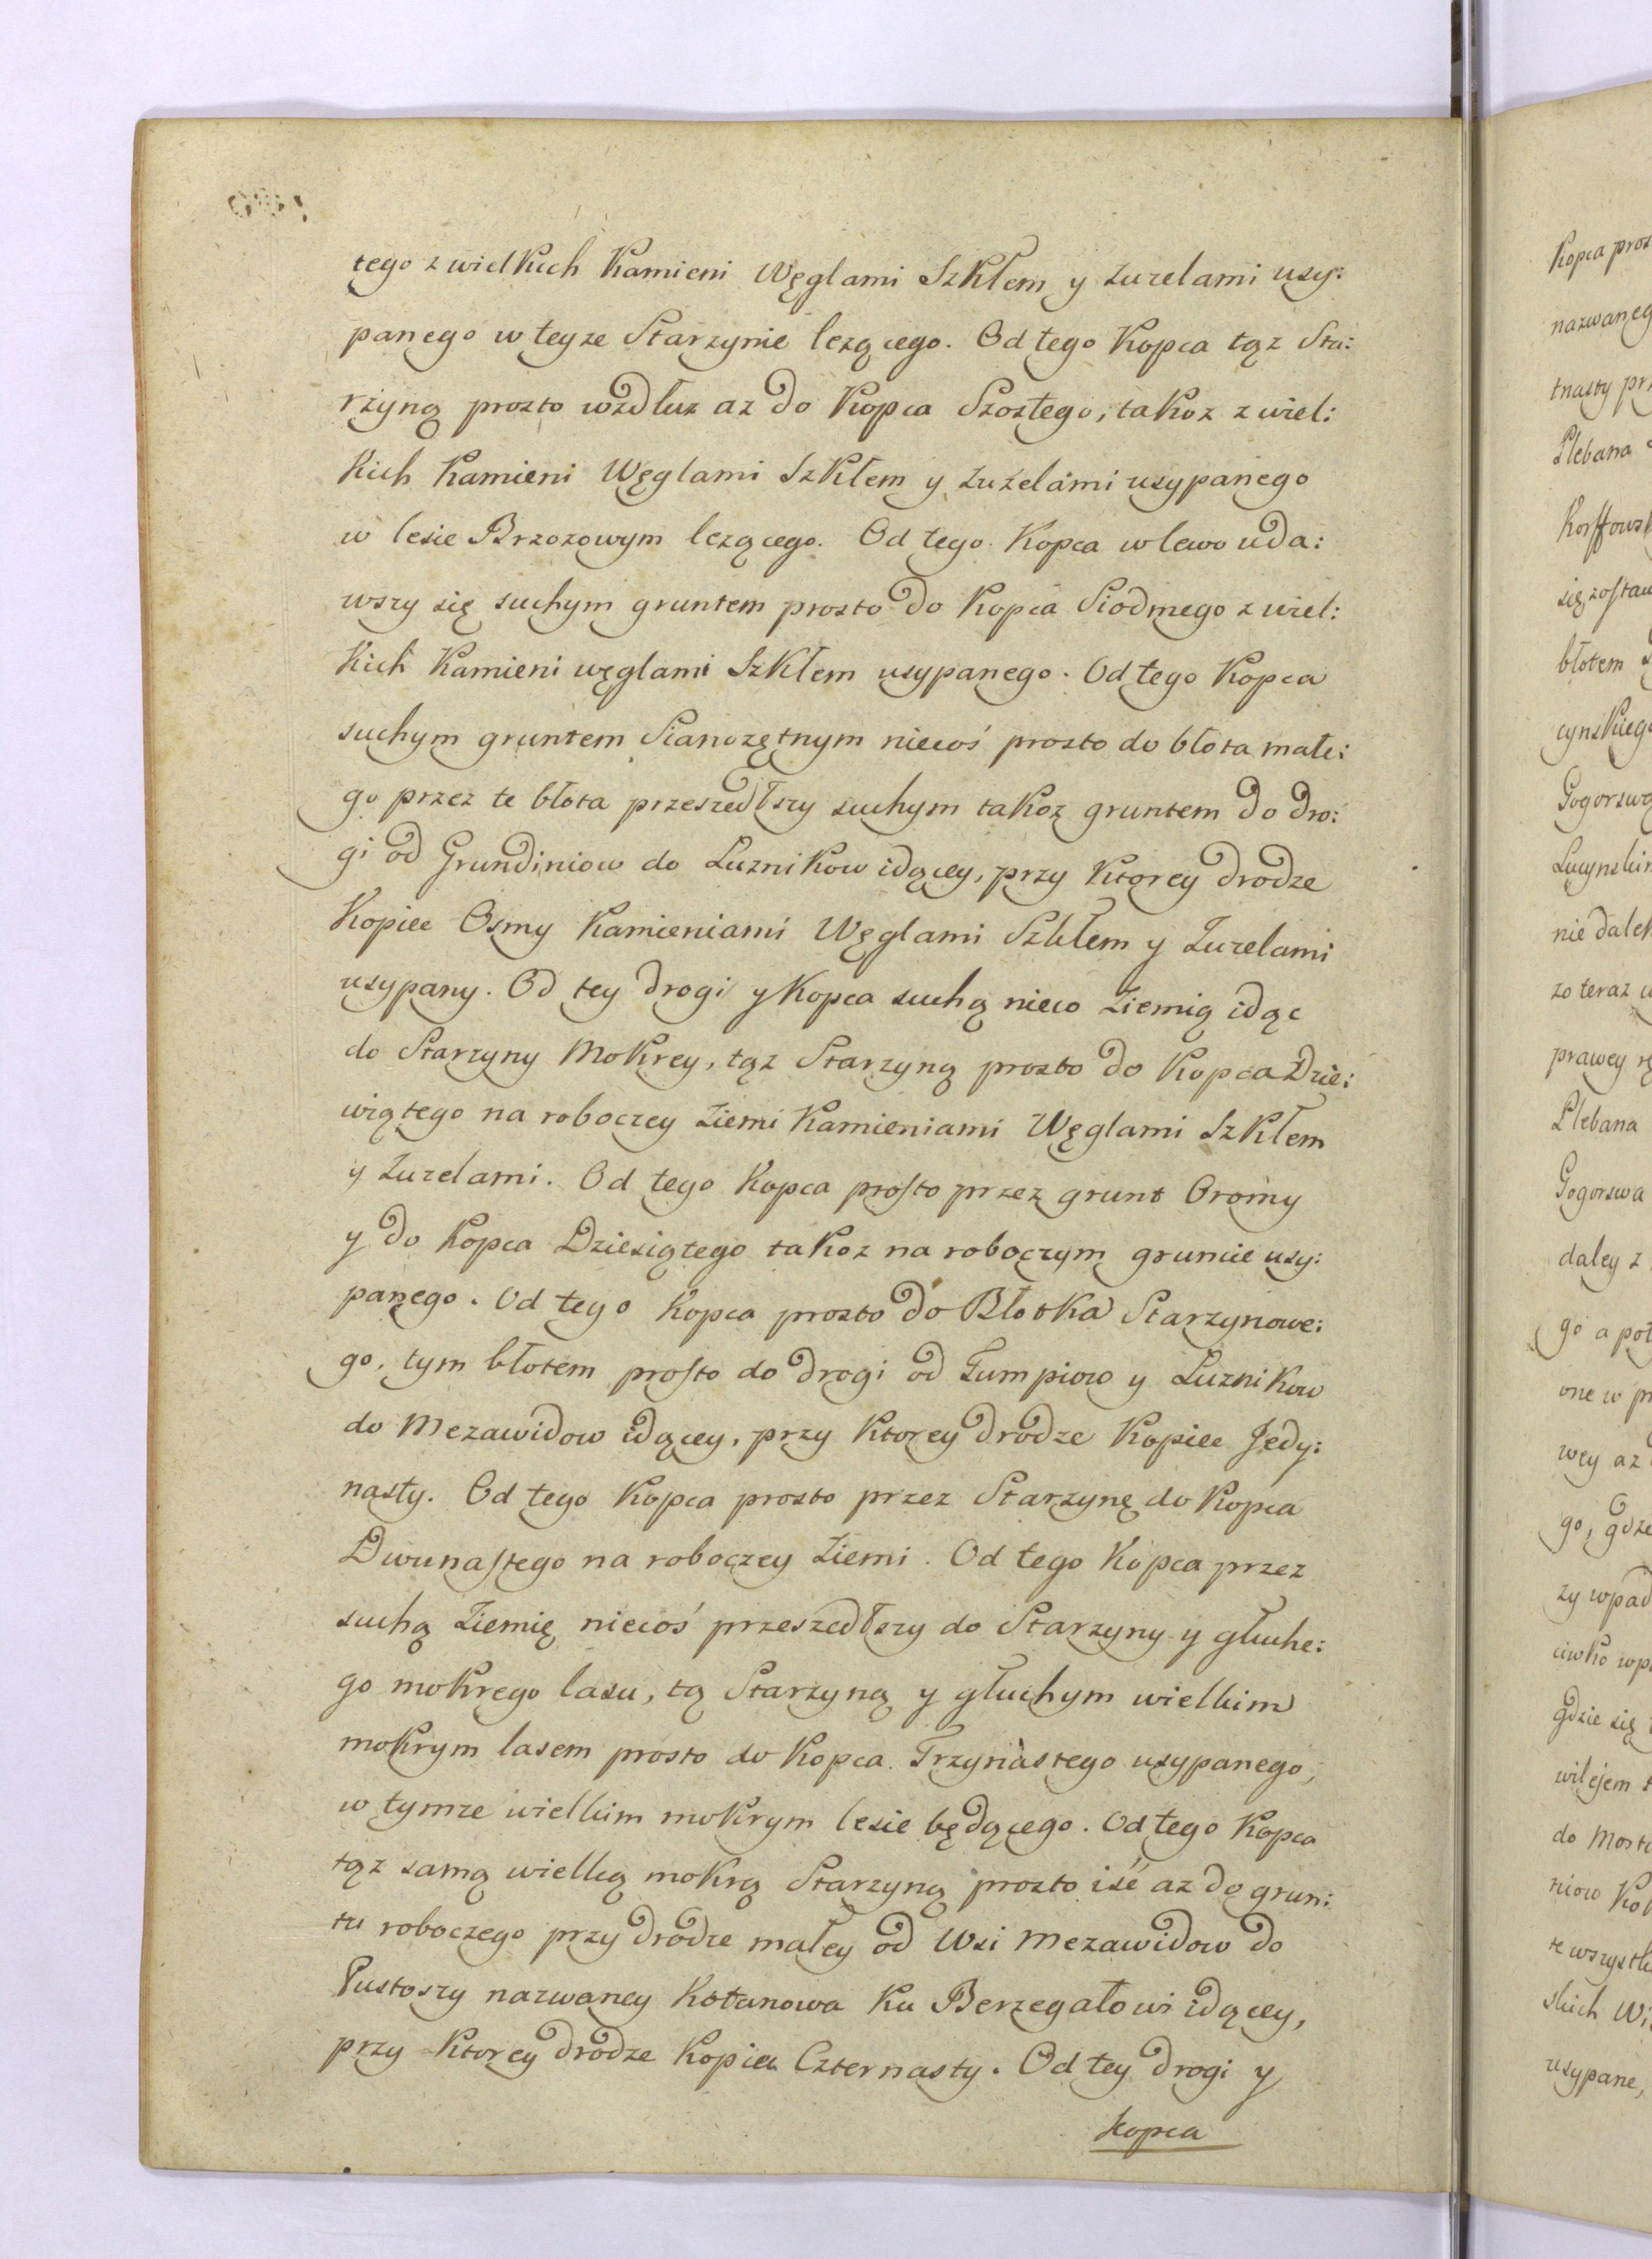 tego z wielkich Kamieni Węglami Szkłem y Zuzelami usy:
panego w teyze Starzynie lezącego. Od tego Kopca tąz Sta:
rzyną prosto wzdłuz az do Kopca Szostego, takoz z wiel:
kich Kamieni Węglami Szkłem y Zuzelami usypanego
w lesie Brzozowym lezącego. Od tego Kopca w lewo uda:
wszy się suchym gruntem prosto do Kopca Siodmego z wiel:
kich Kamieni węglami Szkłem usypanego. Od tego Kopca
suchym gruntem Sianozętnym niecoś prosto do błota małe:
go przez te błota przeszedłszy suchym takoz gruntem do dro:
gi od Grundiniow do Luznikow idącey, przy ktorey drodze
Kopiec Osmy Kamieniami Węglami Szkłem y Zuzelami
usypany. Od tey drogi y Kopca suchą nieco Ziemią idąc
do Starzyny Mokrey, tąz Starzyną prosto do Kopca Dzie:
wiątego na roboczey Ziemi Kamieniami Węglami Szkłem
y Zuzelami. Od tego Kopca prosto przez grunt Oromy
y do Kopca Dziesiątego takoz na roboczym gruncie usy:
panego. Od tego Kopca prosto do Błotka Starzynowe:
go, tym błotem prosto do drogi od Łumpiow y Luznikow
do Mezawidow idącey, przy ktorey drodze Kopiec Jedy:
nasty. Od tego Kopca prosto przez Starzynę do Kopca
Dwunastego na roboczey Ziemi. Od tego Kopca przez
suchą Ziemię niecoś przeszedłszy do Starzyny y głuche:
go mokrego lasu, tą Starzyną y głuchym wielkim
mokrym lasem prosto do Kopca Trzynastego usypanego,
w tymze wielkim mokrym lesie będącego. Od tego Kopca
tąz samą wielką mokrą Starzyną prosto iść az do grun:
tu roboczego przy drodze małey od Wsi Mezawidow do
Pustoszy nazwaney Kotanowa ku Berzegałowi idącey,
przy ktorey drodze Kopiec Czternasty. Od tey drogi y
kopca
Kopca
nazwaneg
tnasty
Plebana
się zostaw
błotem
cynskiego
nie dalek
zo teraz
prawey
Plebana
Gogorswa
daley z
go a
one w
wey az
go, gdzie
zy wpad
gdzie się
wilejem
do
niow
te wszystki
skich
usypane,